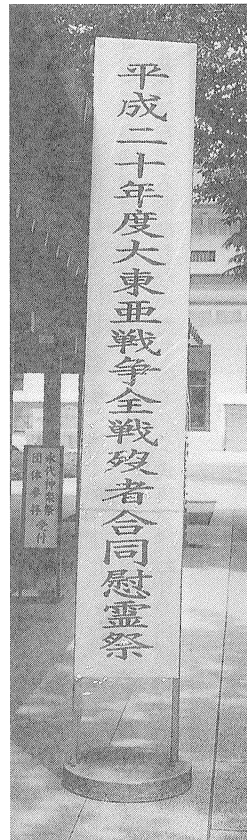 平成二十年度大東亜戦争全戦歿者合同慰霊祭
永代神楽祭
団体参拝受付